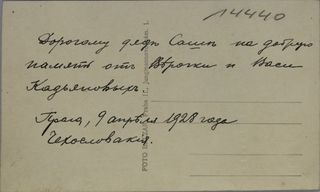 14440
Дорогому дяде Саше на добрую
память отъ Вѣрочки и Васи
Кадьяновыхъ
Прага, 9 апреля 1928 года
Чехословакия.